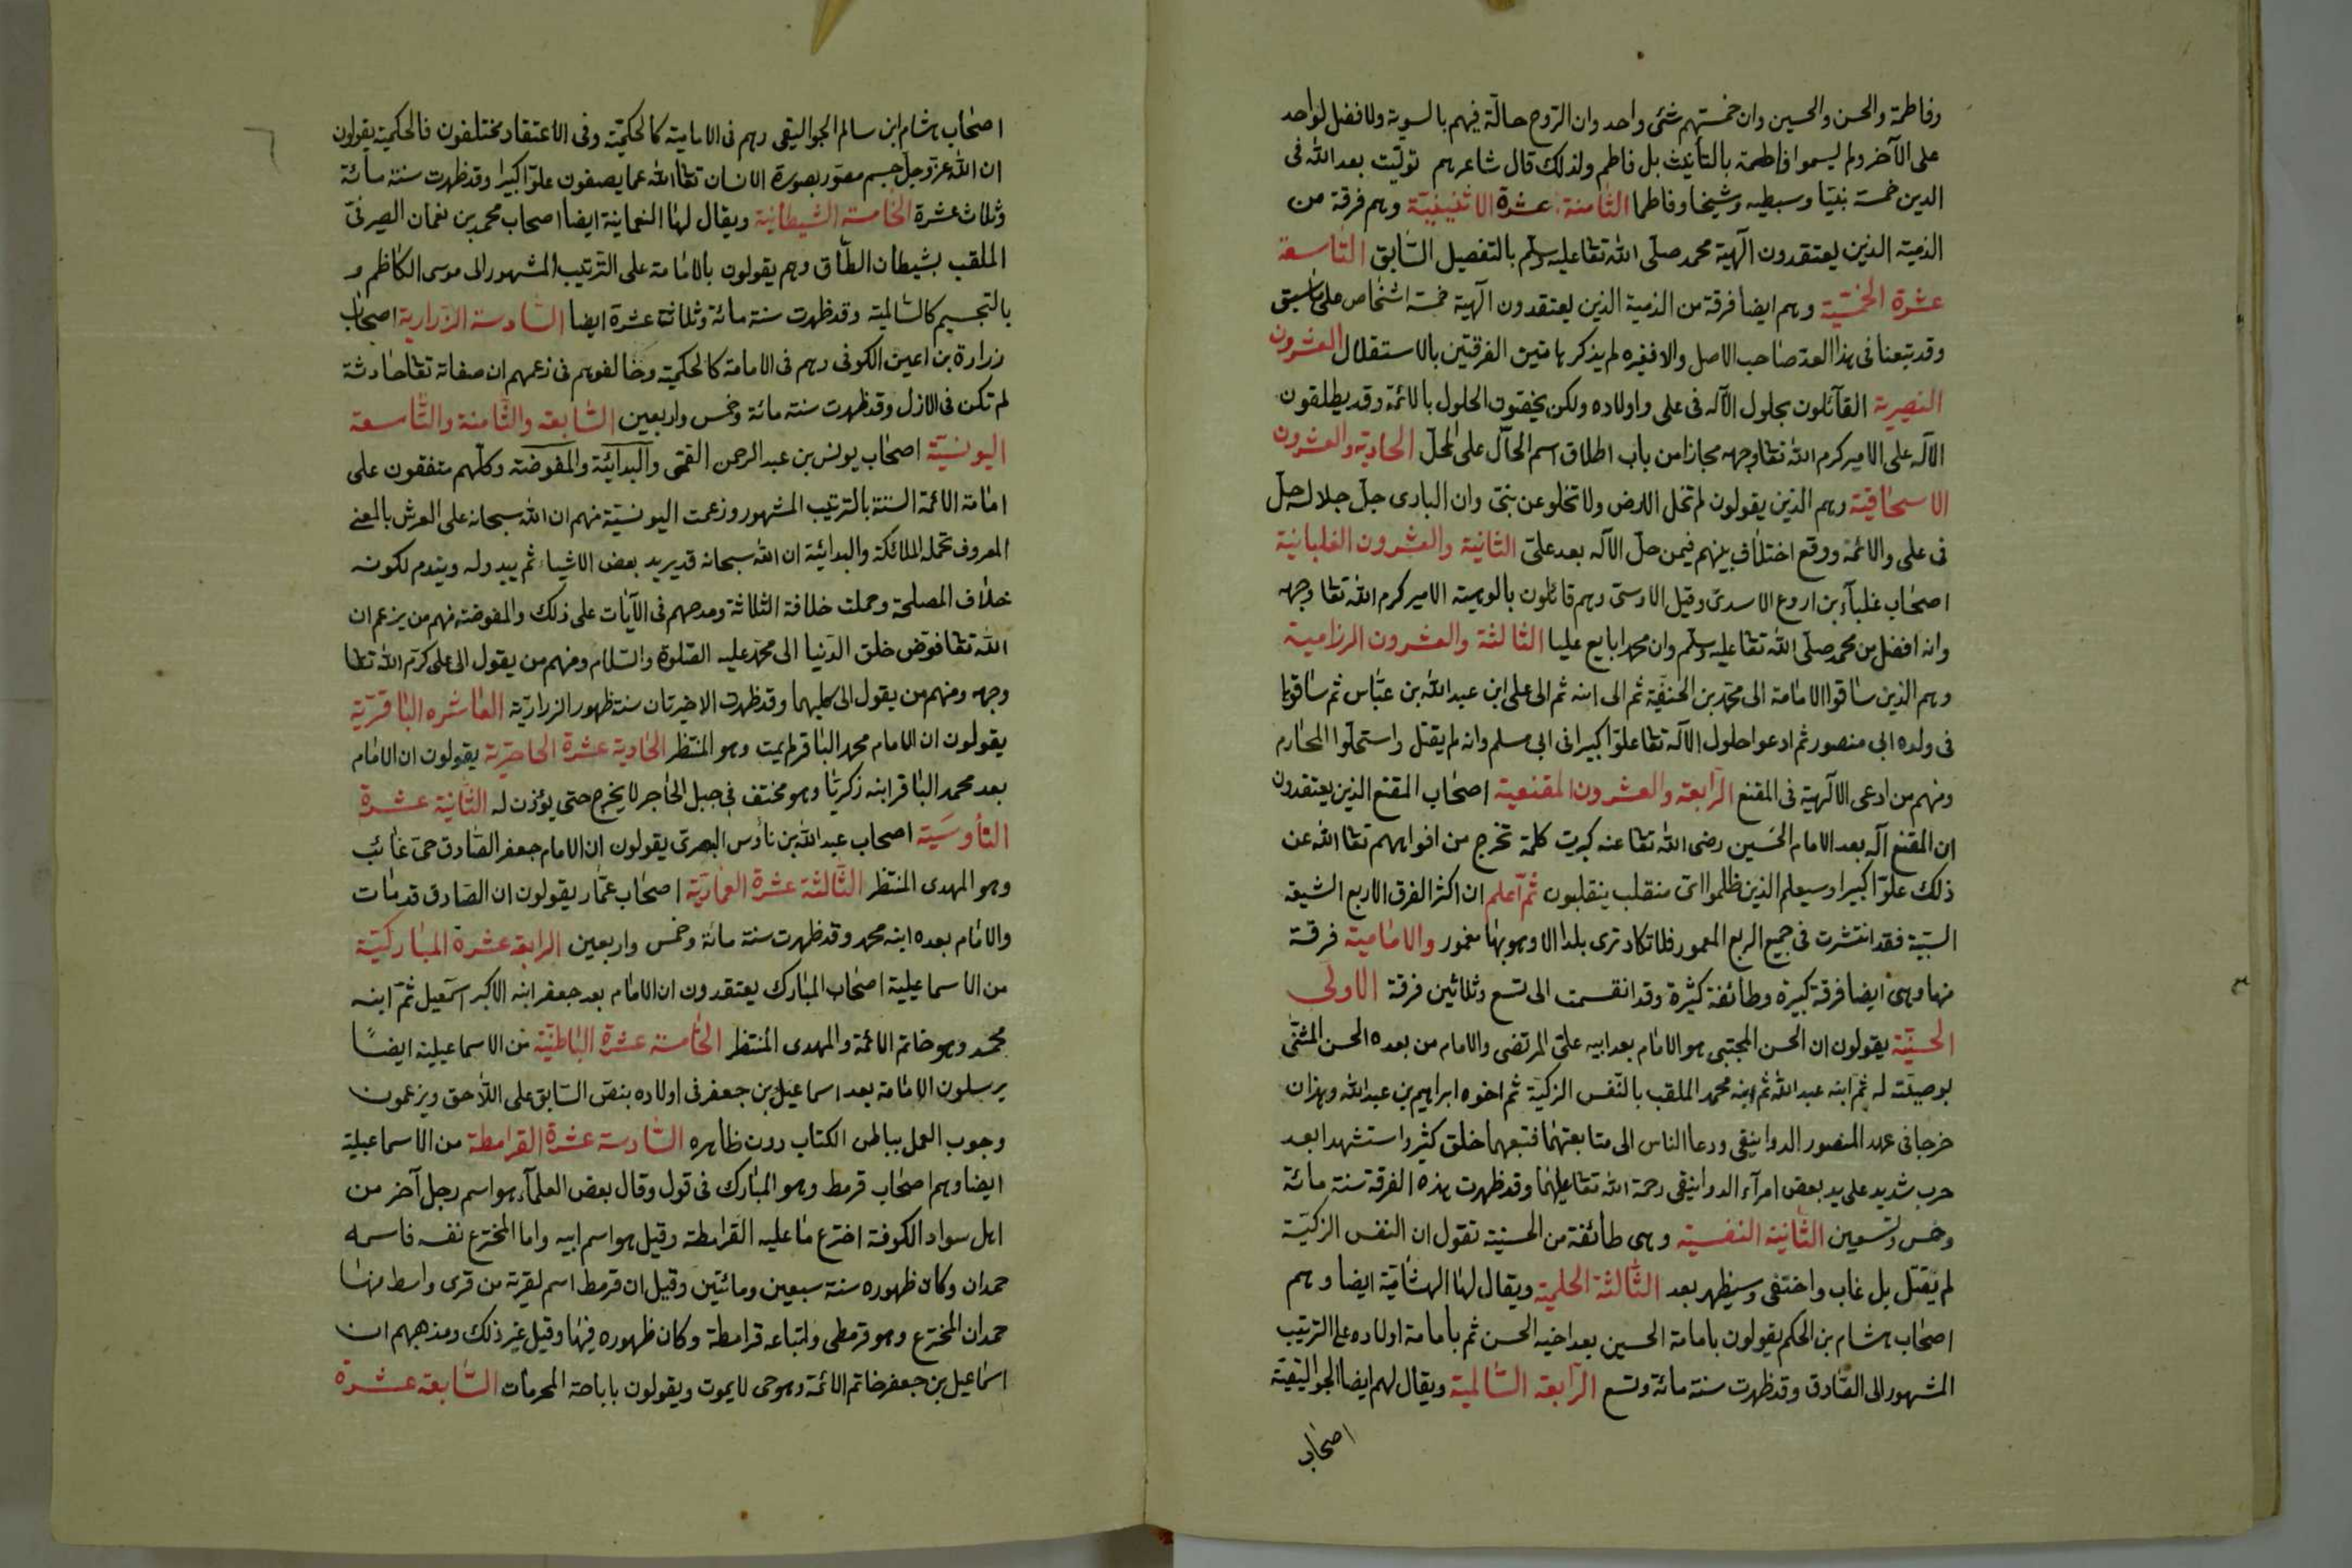 وفاطمة والحسن والحسين وان خمستهم شئ واحد وان الروح حالّة فيهم بالسوية ولا فضل لواحد
على الآخر ولم يسموا فاطمة بالتأنيث بل فاطم ولذلك قال شاعرهم توليت بعد الله فى
الدين خمسة نبيّا وسبطيه وشيخا وفاطما الثامنة عشرة الاثنينيّة وهم فرقة من
الذمية الذين يعتقدون آلهية محمد صلى الله تعا عليه وسلم بالتفصيل السّابق التّاسعة
عشرة الخمسيّة وهم ايضا فرقة من الذمية الذين يعتقدون آلهية خمسة اشخاص على ما سبق
وقد تبعنا فى هذا العدّ صاحب الاصل والا فغيره لم يذكر هاتين الفرقتين بالاستقلال العشرون
النصيرية القآئلون بحلول الآله فى على واولاده ولكن يخصّون الحلول بالائمة وقد يطلقون
الآله على الامير كرم الله تعا وجهه مجازا من باب اطلاق اسم الحآل على المحلّ الحادية والعشرون
الاسحاقية وهم الذين يقولون لم تخل الارض ولا تخلو عن نبىّ وان البارى جلّ جلاله حلّ
فى على والائمة ووقع اختلاف بينهم فيمن حلّ الآله بعد علىّ الثانية والعشرون الغلبانية
اصحاب غلبآء بن اروع الاسدىّ وقيل الاوسىّ وهم قائلون بالوهيته الامير كرم الله تعا وجهه
وانه افضل من محمد صلى الله تعا عليه وسلم وان محمدا بايع عليا الثالثة والعشرون الرزامية
وهم الذين ساقوا الامامة الى محمد بن الحنفية ثم الى ابنه ثم الى على ابن عبد الله بن عبّاس ثم ساقوها
فى ولده الى منصور ثم ادعوا حلول الآله تعا علوّا كبيرا فى ابى مسلم وانه لم يقتل واستحلّوا المحارم
ومنهم من ادعى الآلهية فى المقنع الرّابعة والعشرون المقنعية اصحاب المقنع الذين يعتقدون
ان المقنع آله بعد الامام الحسين رضى الله تعا عنه كبرت كلمة تخرج من افواههم تعا الله عن
ذلك علوّا كبيرا وسيعلم الذين ظلموا اىّ منقلب ينقلبون ثمّ اعلم ان اكثر الفرق الاربع الشيعة
السبّية فقد انتشرت فى جميع الربع المعمور فلا تكاد ترى بلدا الا وهو بها مغمور والامامية فرقة
منها وهى ايضا فرقة كبيرة وطائفة كثيرة وقد انقسمت الى تسع وثلاثين فرقة الاولى
الحسنيّة يقولون ان الحسن المجتبى هو الامام بعد ابيه علىّ المرتضى والامام من بعده الحسن المثنّى
بوصيّته له ثمّ ابنه عبد الله ثم ابنه محمد الملقب بالنّفس الزكيّة ثم اخوه ابراهيم بن عبد الله وهذان
خرجا فى عهد المنصور الدوانيقى ودعا الناس الى متابعتهما فتبعهما خلق كثير واستشهدا بعد
حرب شديد على يد بعض امرآء الدوانيقى رحمة الله تعا عليهما وقد ظهرت هذه الفرقة سنة مائة
وخمس وتسعين الثّانية النفسية وهى طائفة من الحسنية تقول ان النفس الزكيّة
لم يقتل بل غاب واختفى وسيظهر بعد الثّالثة الحكمية ويقال لها الهشامية ايضا وهم
اصحاب هشام بن الحكم يقولون بامامة الحسين بعد اخيه الحسن ثم بامامة اولاده على الترتيب
المشهور الى الصّادق وقد ظهرت سنة مائة وتسع الرّابعة السّالمية ويقال لهم ايضا الجواليقية
اصحاب
اصحاب هشام ابن سالم الجواليقى وهم فى الامامية كالحكميّة وفى الاعتقاد مختلفون فالحكمية يقولون
ان الله عزّ وجلّ جسم مصوّر بصورة الانسان تعا الله عما يصفون علوّا كبيرا وقد ظهرت سنة مائة
وثلاث عشرة الخامسة الشيطانية ويقال لها النعمانية ايضا اصحاب محمد بن نعمان الصيرفىّ
الملقب بشيطان الطّاق وهم يقولون بالامامة على الترتيب المشهور الى موسى الكاظم و
بالتجسيم كالسّالمية وقد ظهرت سنة مائة وثلاثة عشرة ايضا السّادسة الزّرارية اصحاب
زرارة بن اعين الكوفى وهم فى الامامة كالحكمية وخالفوهم فى زعمهم ان صفاته تعا حادثة
لم تكن فى الازل وقد ظهرت سنة مائة وخمس واربعين السّابعة والثّامنة والتّاسعة
اليونسيّة اصحاب يونس بن عبد الرحمن القمّى والبدآئية والمفوضة وكلّهم متفقون على
امامة الائمة الستة بالترتيب المشهور وزعمت اليونسيّة منهم ان الله سبحانه على العرش بالمعنى
المعروف تحمله الملائكة والبدائية ان الله سبحانه قد يريد بعض الاشياء ثم يبدو له ويندم لكونه
خلاف المصلحة وحملت خلافة الثلاثة ومدحهم فى الآيات على ذلك والمفوضة منهم من يزعم ان
الله تعا فوّض خلق الدّنيا الى محمّد عليه الصّلوة والسّلام ومنهم من يقول الى على كرّم الله تعا
وجهه ومنهم من يقول الى كليهما وقد ظهرت الاخيرتان سنة ظهور الزرارية العاشره الباقريّة
يقولون ان الامام محمد الباقر لم يمت وهو المنتظر الحادية عشرة الحاصرية يقولون ان الامام
بعد محمد الباقر ابنه زكريّا وهو مختف فى جبل الحاجر لا يخرج حتى يؤذن له الثّانية عشرة
النأوسيّة اصحاب عبد الله بن نأوس البصرىّ يقولون ان الامام جعفر الصّادق حىّ غائب
وهو المهدى المنتظر الثّالثة عشرة العمّاريّة اصحاب عمّار يقولون ان الصّادق قد مات
والامام بعده ابنه محمد وقد ظهرت سنة مائة وخمس واربعين الرابعة عشرة المباركيّة
من الاسماعيلية اصحاب المبارك يعتقدون ان الامام بعد جعفر ابنه الاكبر اسمعيل ثمّ ابنه
محمّد وهو خاتم الائمة والمهدى المنتظر الخامسة عشرة الباطنيّة من الاسماعيلية ايضًا
يرسلون الامامة بعد اسماعيل بن جعفر فى اولاده بنصّ السّابق على اللّاحق ويزعمون
وجوب العمل بباطن الكتاب دون ظاهره السّادسة عشرة القرامطة من الاسماعيلية
ايضا وهم اصحاب قرمط وهو المبارك فى قول وقال بعض العلمآء هو اسم رجل آخر من
اهل سواد الكوفة اخترع ما عليه القرامطة وقيل هو اسم ابيه واما المخترع نفسه فاسمه
حمدان وكان ظهوره سنة سبعين ومائتين وقيل ان قرمط اسم لقرية من قرى واسط منها
حمدان المخترع وهو قرمطى واتباعه قرامطة وكان ظهوره فيها وقيل غير ذلك ومذهبهم ان
اسماعيل بن جعفر خاتم الائمة وهو حى لا يموت ويقولون باباحة المحرمات السّابعة عشرة